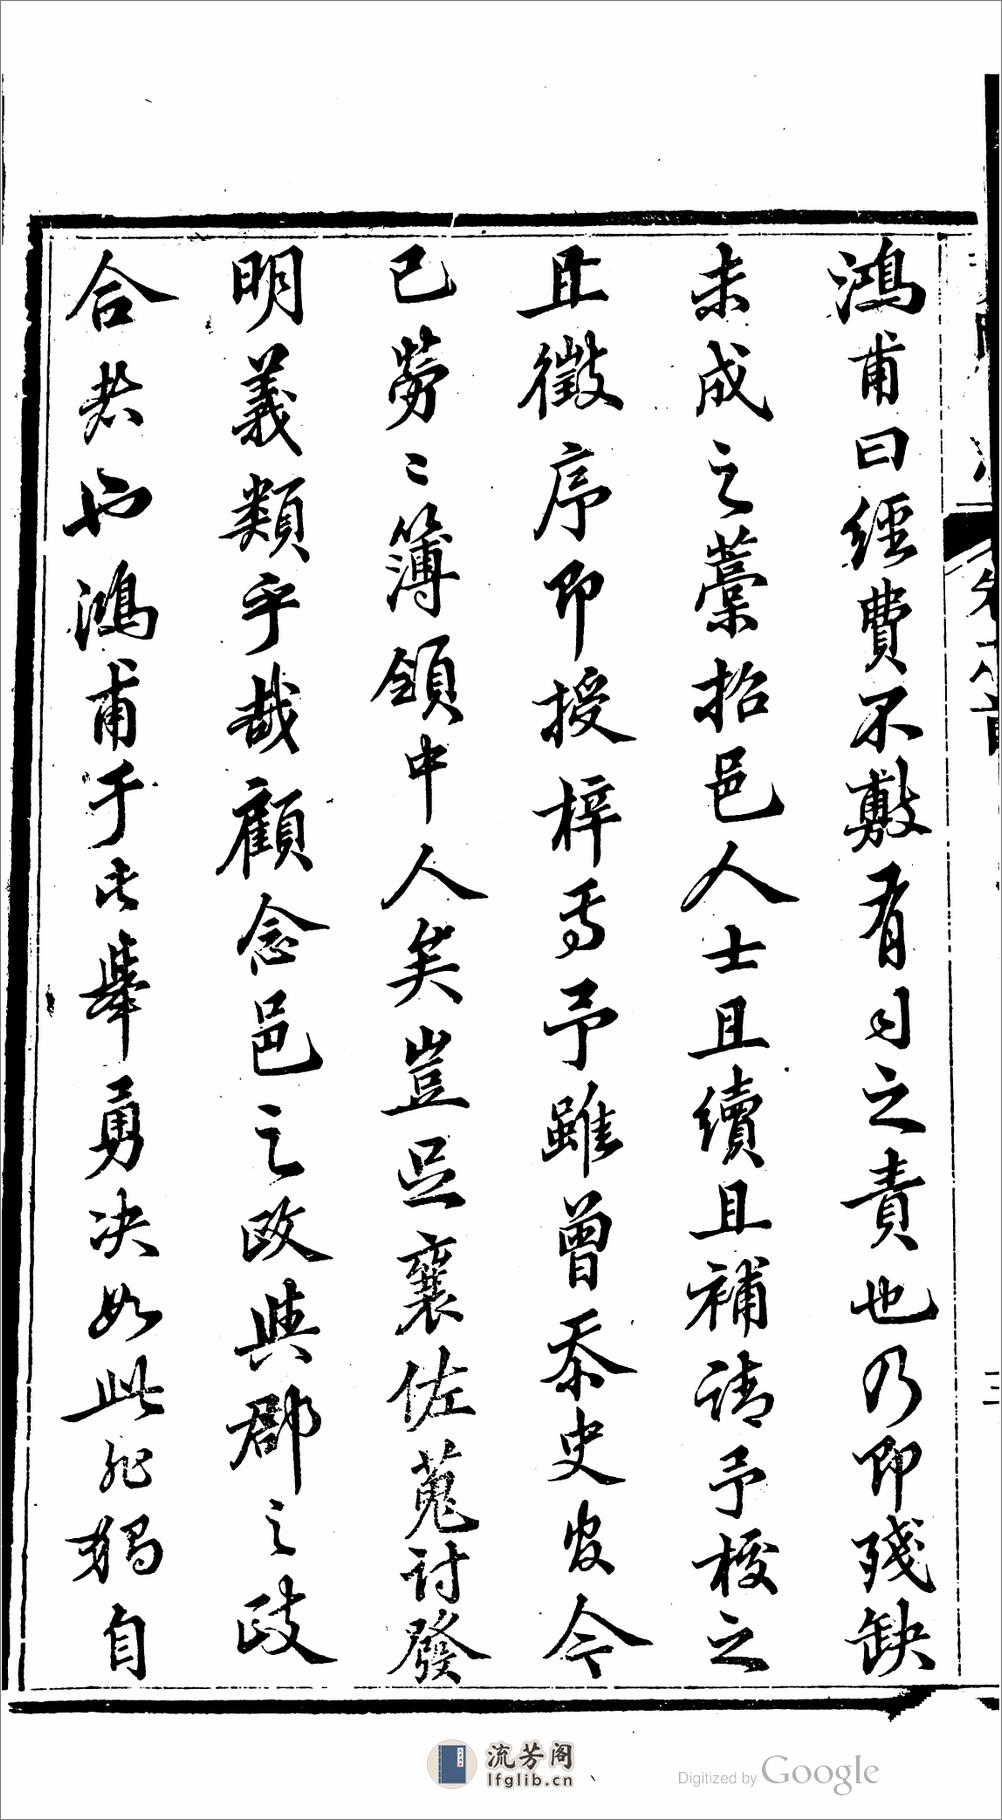 鴻甫曰經費不敷有司之責也乃即殘缺
未成之藁招邑人士且續且補請予校之
且徵序即授梓焉予雖曾忝史官今
已勞勞簿領中人矣豈足襄佐蒐討發
明義類乎哉顧念邑之政與郡之政
合者也鴻甫于此舉勇決如此非獨自
卷之首
三
流芳阁
lfglib.cn
Digitized by Google